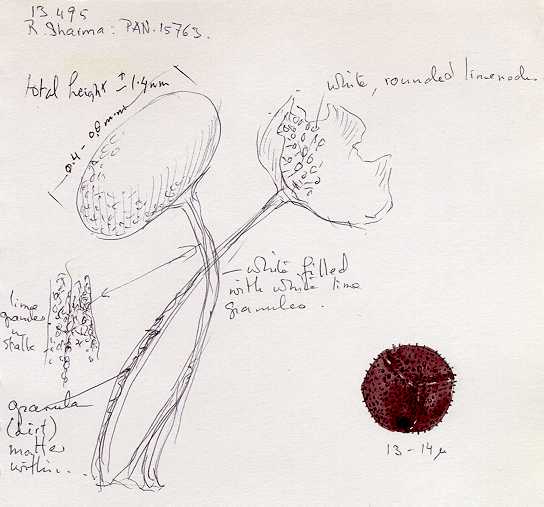 13.495
R. Sharma: PAN. 15763.
total height = 1.4 mm
0.4 - 0.6 mm
white, rounded limenodes
white filled
with white lime
granules.
lime
granules
in
stalk
granula
(dirt)
matter
within...
13-14 µ